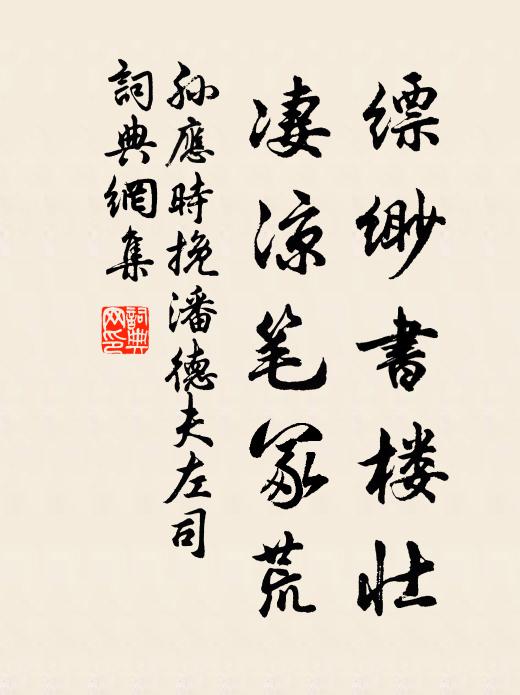 缥缈書楼壮
凄凉笔冢荒
孙應時挽潘德夫左司
詞典網集
詞典网印